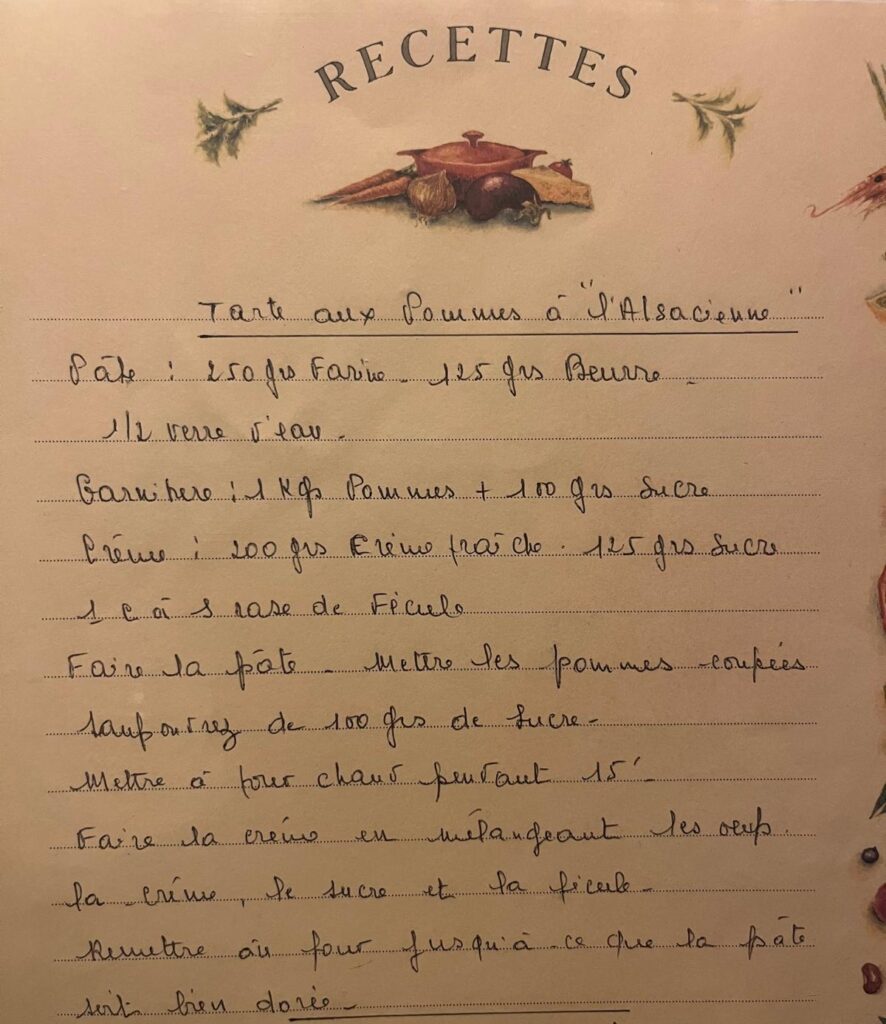 RECETTES
Tarte aux Pommes à "l'Alsacienne"
Pâte : 250 grs Farine - 125 grs Beurre -
1/2 verre d'eau -
Garniture : 1 Kgs Pommes + 100 grs Sucre
Crème : 200 grs Crème fraîche . 125 grs Sucre
1 c à s rase de Fécule
Faire la pâte - Mettre les pommes coupées
saupoudrez de 100 grs de Sucre -
Mettre à four chaud pendant 15' -
Faire la crème en mélangeant les oeufs .
la crème, le sucre et la fécule -
Remettre au four jusqu'à ce que la pâte
soit bien dorée -